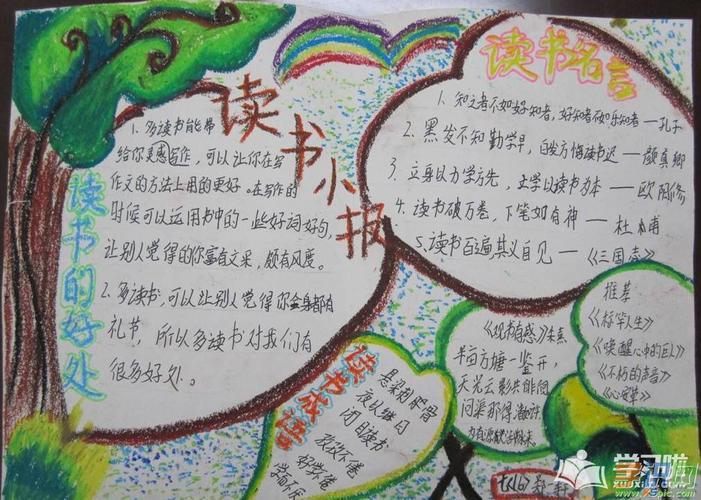 读书小报
读书的好处
1. 多读书能帮
给你灵感写作，可以让你在写
作文的方法上用的更好。在写作的
时候可以运用书中的一些好词好句，
让别人觉得的你富有文采，颇有风度。
2. 多读书，可以让别人觉得你全身都有
礼节，所以多读书对我们有
很多好处。
读书名言
1. 知之者不如好知者，好知者不如乐知者——孔子
2. 黑发不知勤学早，白发方悔读书迟——颜真卿
3. 立身以力学为先，立学以读书为本——欧阳修
4. 读书破万卷，下笔如有神——杜甫
5. 读书百遍，其义自见——《三国志》
读书成语
悬梁刺股
夜以继日
闭目读书
孜孜不倦
好学不倦
《观书有感》朱熹
半亩方塘一鉴开，
天光云影共徘徊
问渠那得清如许
为有源头活水来
推荐
《标竿人生》
《唤醒心中的巨人》
《不朽的声音》
《心灵草》
学习啦
xuexila.com